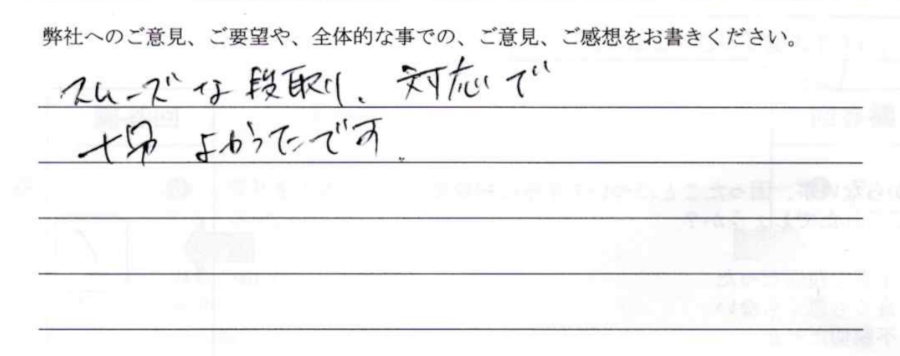 弊社へのご意見、ご要望や、全体的な事での、ご意見、ご感想をお書きください。
スムーズな段取り、対応で
大変よかったです。